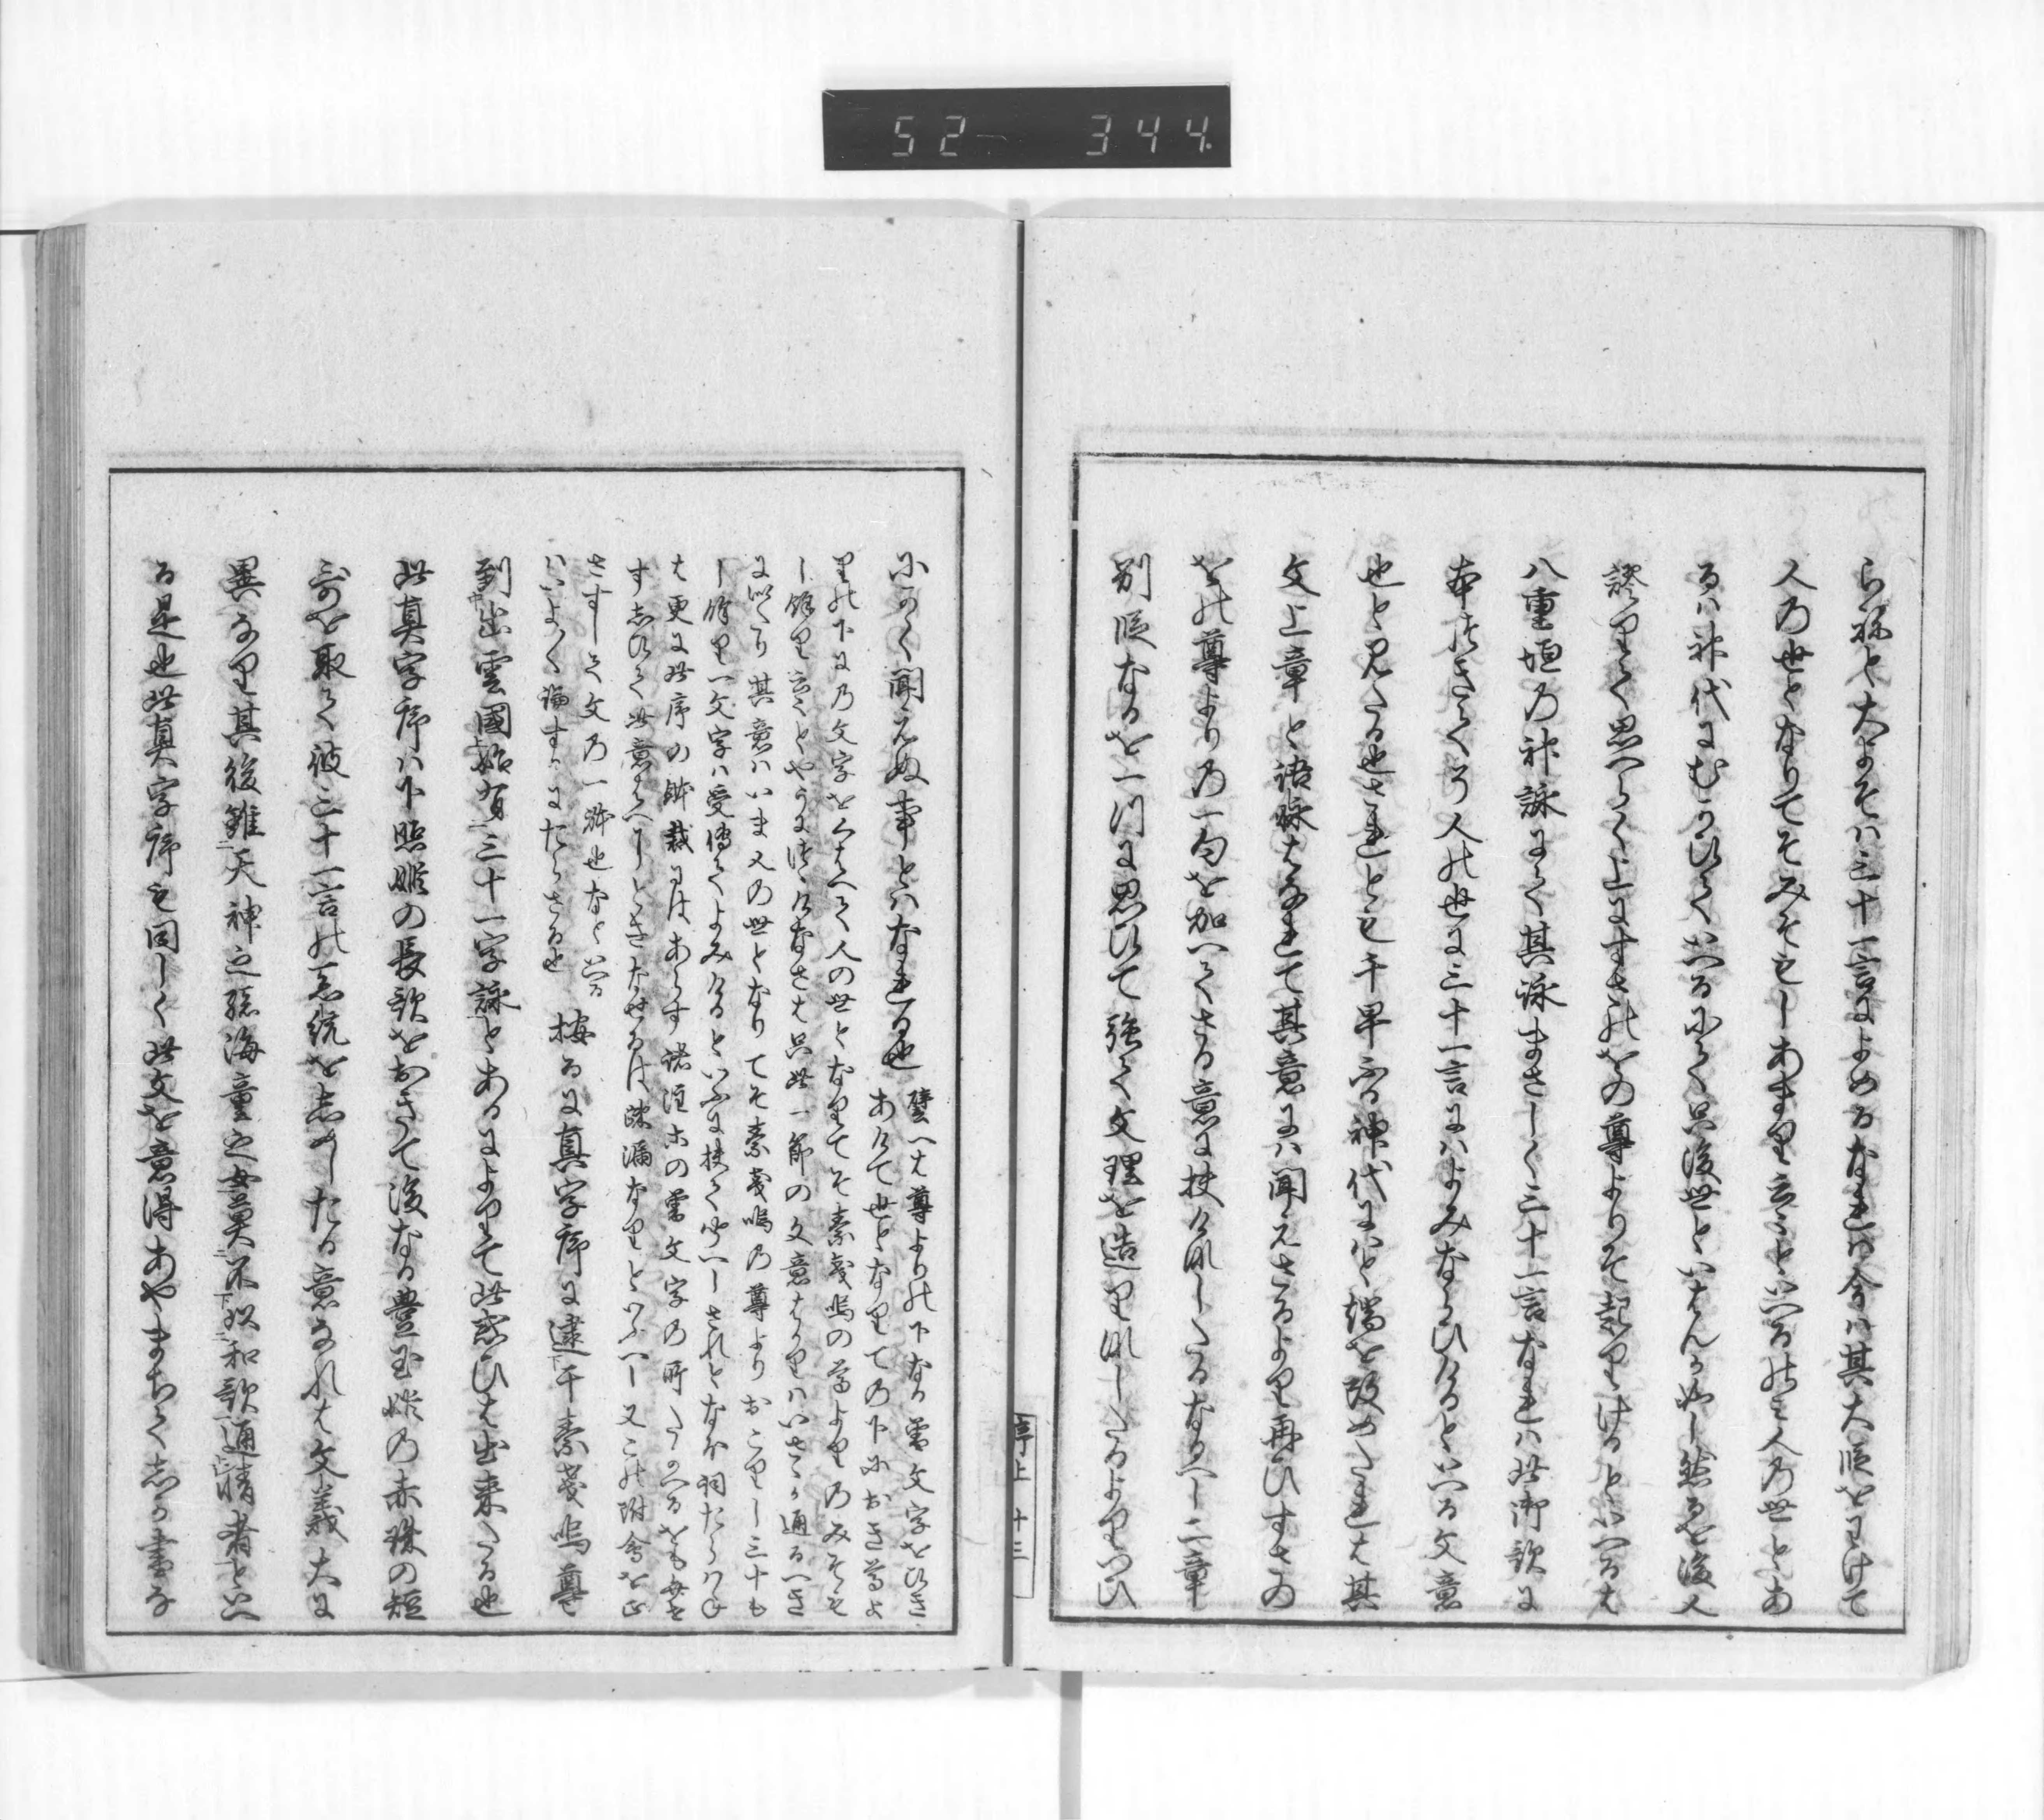 52 344
らねと大よそハ三十一言によめるなれは今ハ其大段をわけて
人の世となりてそみそもしあまり云々といへるのミ人の世とあ
るハ神代にむかひていへるにて只後世といはんか如し然るを後人
謬りて思へらく上にすさのをの尊よりそ起りけるといへるは
八重垣の神詠にて其詠まさしく三十一言なれハ此御歌に
本つきてそ人の世に三十一言にハよみならひけるといへる文意
也と見たる也されとも千早ふる神代にハと端を改めたれは其
文上章と語脉はなれて其意にハ聞えさるより再ひすさの
をの尊よりの一句を加へてさる意に挟け成したるなるへし二章
別段なるを一つに思ひて強て文理を造り成したるよりつひ
序上 十三
にかく聞えぬ事とハなれる也 譬へは尊よりの下なる曽文字をひき
あけて世となりての下におき尊よ
りの下にの文字をくはへて人の世となりてそ素戔嗚の尊よりのみそも
し餘り云々とやうにつゝけなさは只此一節の文意はかりハいさゝか通るへき
に似たり其意ハいま人の世となりてそ素戔嗚の尊よりおこりし三十も
し餘り一文字ハ受傳てよみけるといふに挟て聞へしされとなほ詞たらハね
は更に此序の躰裁にはあらす諸注家の曽文字の所たかへるをも女せ
す志ひて此意はへしときなせるは疎漏なりといふへし又この附會を正
さすして文の一躰也なといふ
ハいよゝ論するにたらさる也 按るに真字序に逮于素戔嗚尊
到出雲國始有三十一字詠とあるによりて此惑ひは出来たる也
此真字序ハ下照姫の長歌をおきて後なる豊玉姫の赤珠の短
歌を取て彼三十一言の系統を志めしたる意なれは文義大に
異なり其後雖天神之孫海童之女莫不以和歌通情者といへ
る是也此真字序も同しく此文を意得あやまちて志か書な